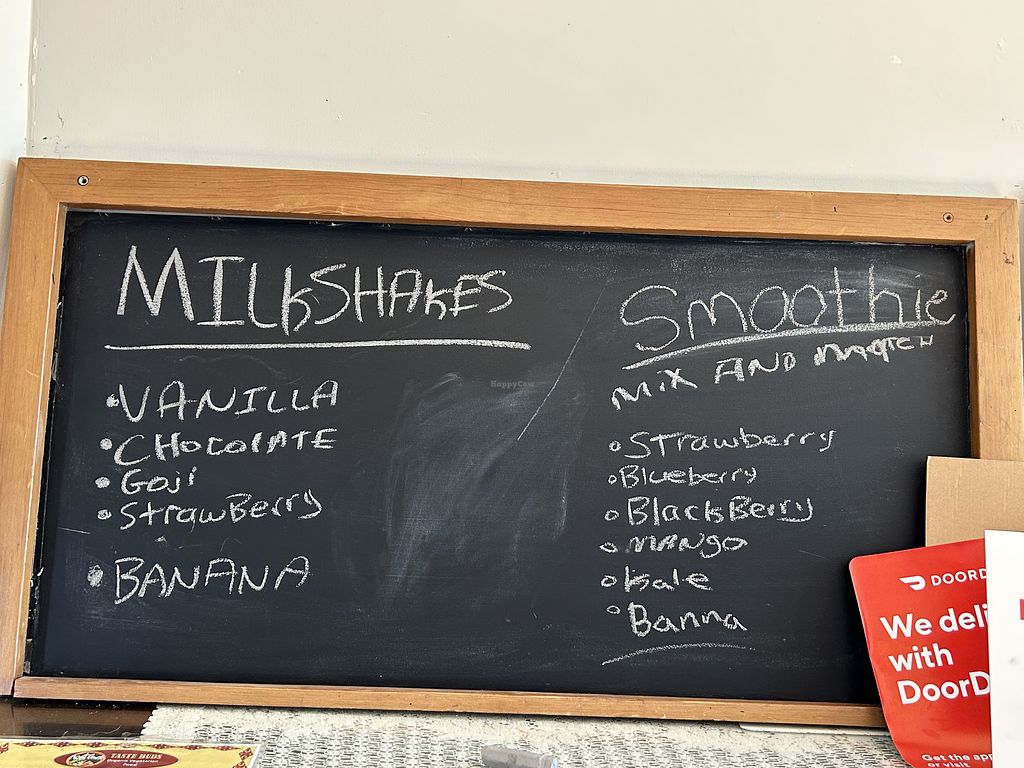 MILKSHAKES
• VANILLA
• CHOCOLATE
• Goji
• StrawBerry
• BANANA
Smoothie
MiX AND MATCH
• STrawberry
• Blueberry
• BlacksBerry
• MANgo
• Kale
• Banna
HappyCow
DOORD
We deli
with
DoorD
Get the app
or visit
TASTE BUDS
Organic Vegetarian
Food